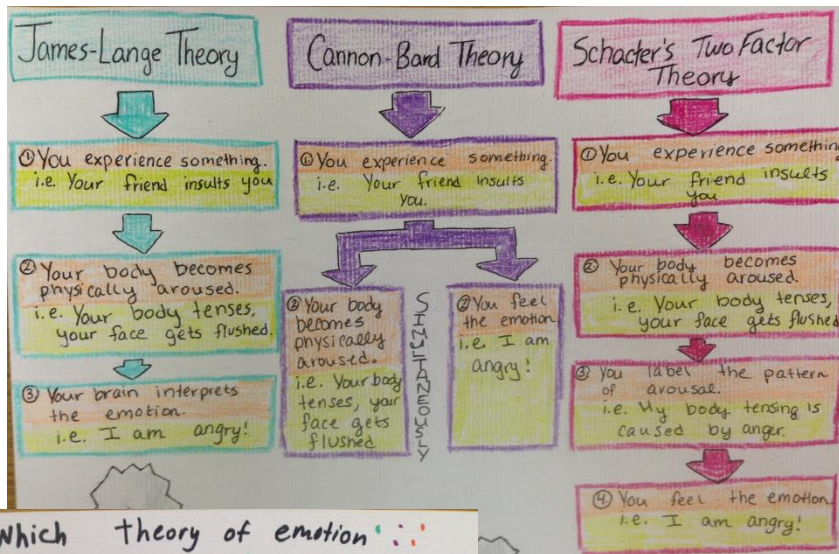 James-Lange Theory
① You experience something.
i.e. Your friend insults you
② Your body becomes
physically aroused.
i.e. Your body tenses,
your face gets flushed.
③ Your brain interprets
the emotion.
i.e. I am angry!
Cannon-Bard Theory
① You experience something.
i.e. Your friend insults
you.
② Your body
becomes
physically
aroused.
i.e. Your body
tenses, your
face gets
flushed
SIMULTANEOUSLY
② You feel
the emotion
i.e. I am
angry!
Schacter's Two Factor
Theory
① You experience something
i.e. Your friend insults
you
② Your body becomes
physically aroused.
i.e. Your body tenses,
your face gets flushed
③ You label the pattern
of arousal.
i.e. My body tensing is
caused by anger.
④ You feel the emotion
i.e. I am angry!
Which theory of emotion